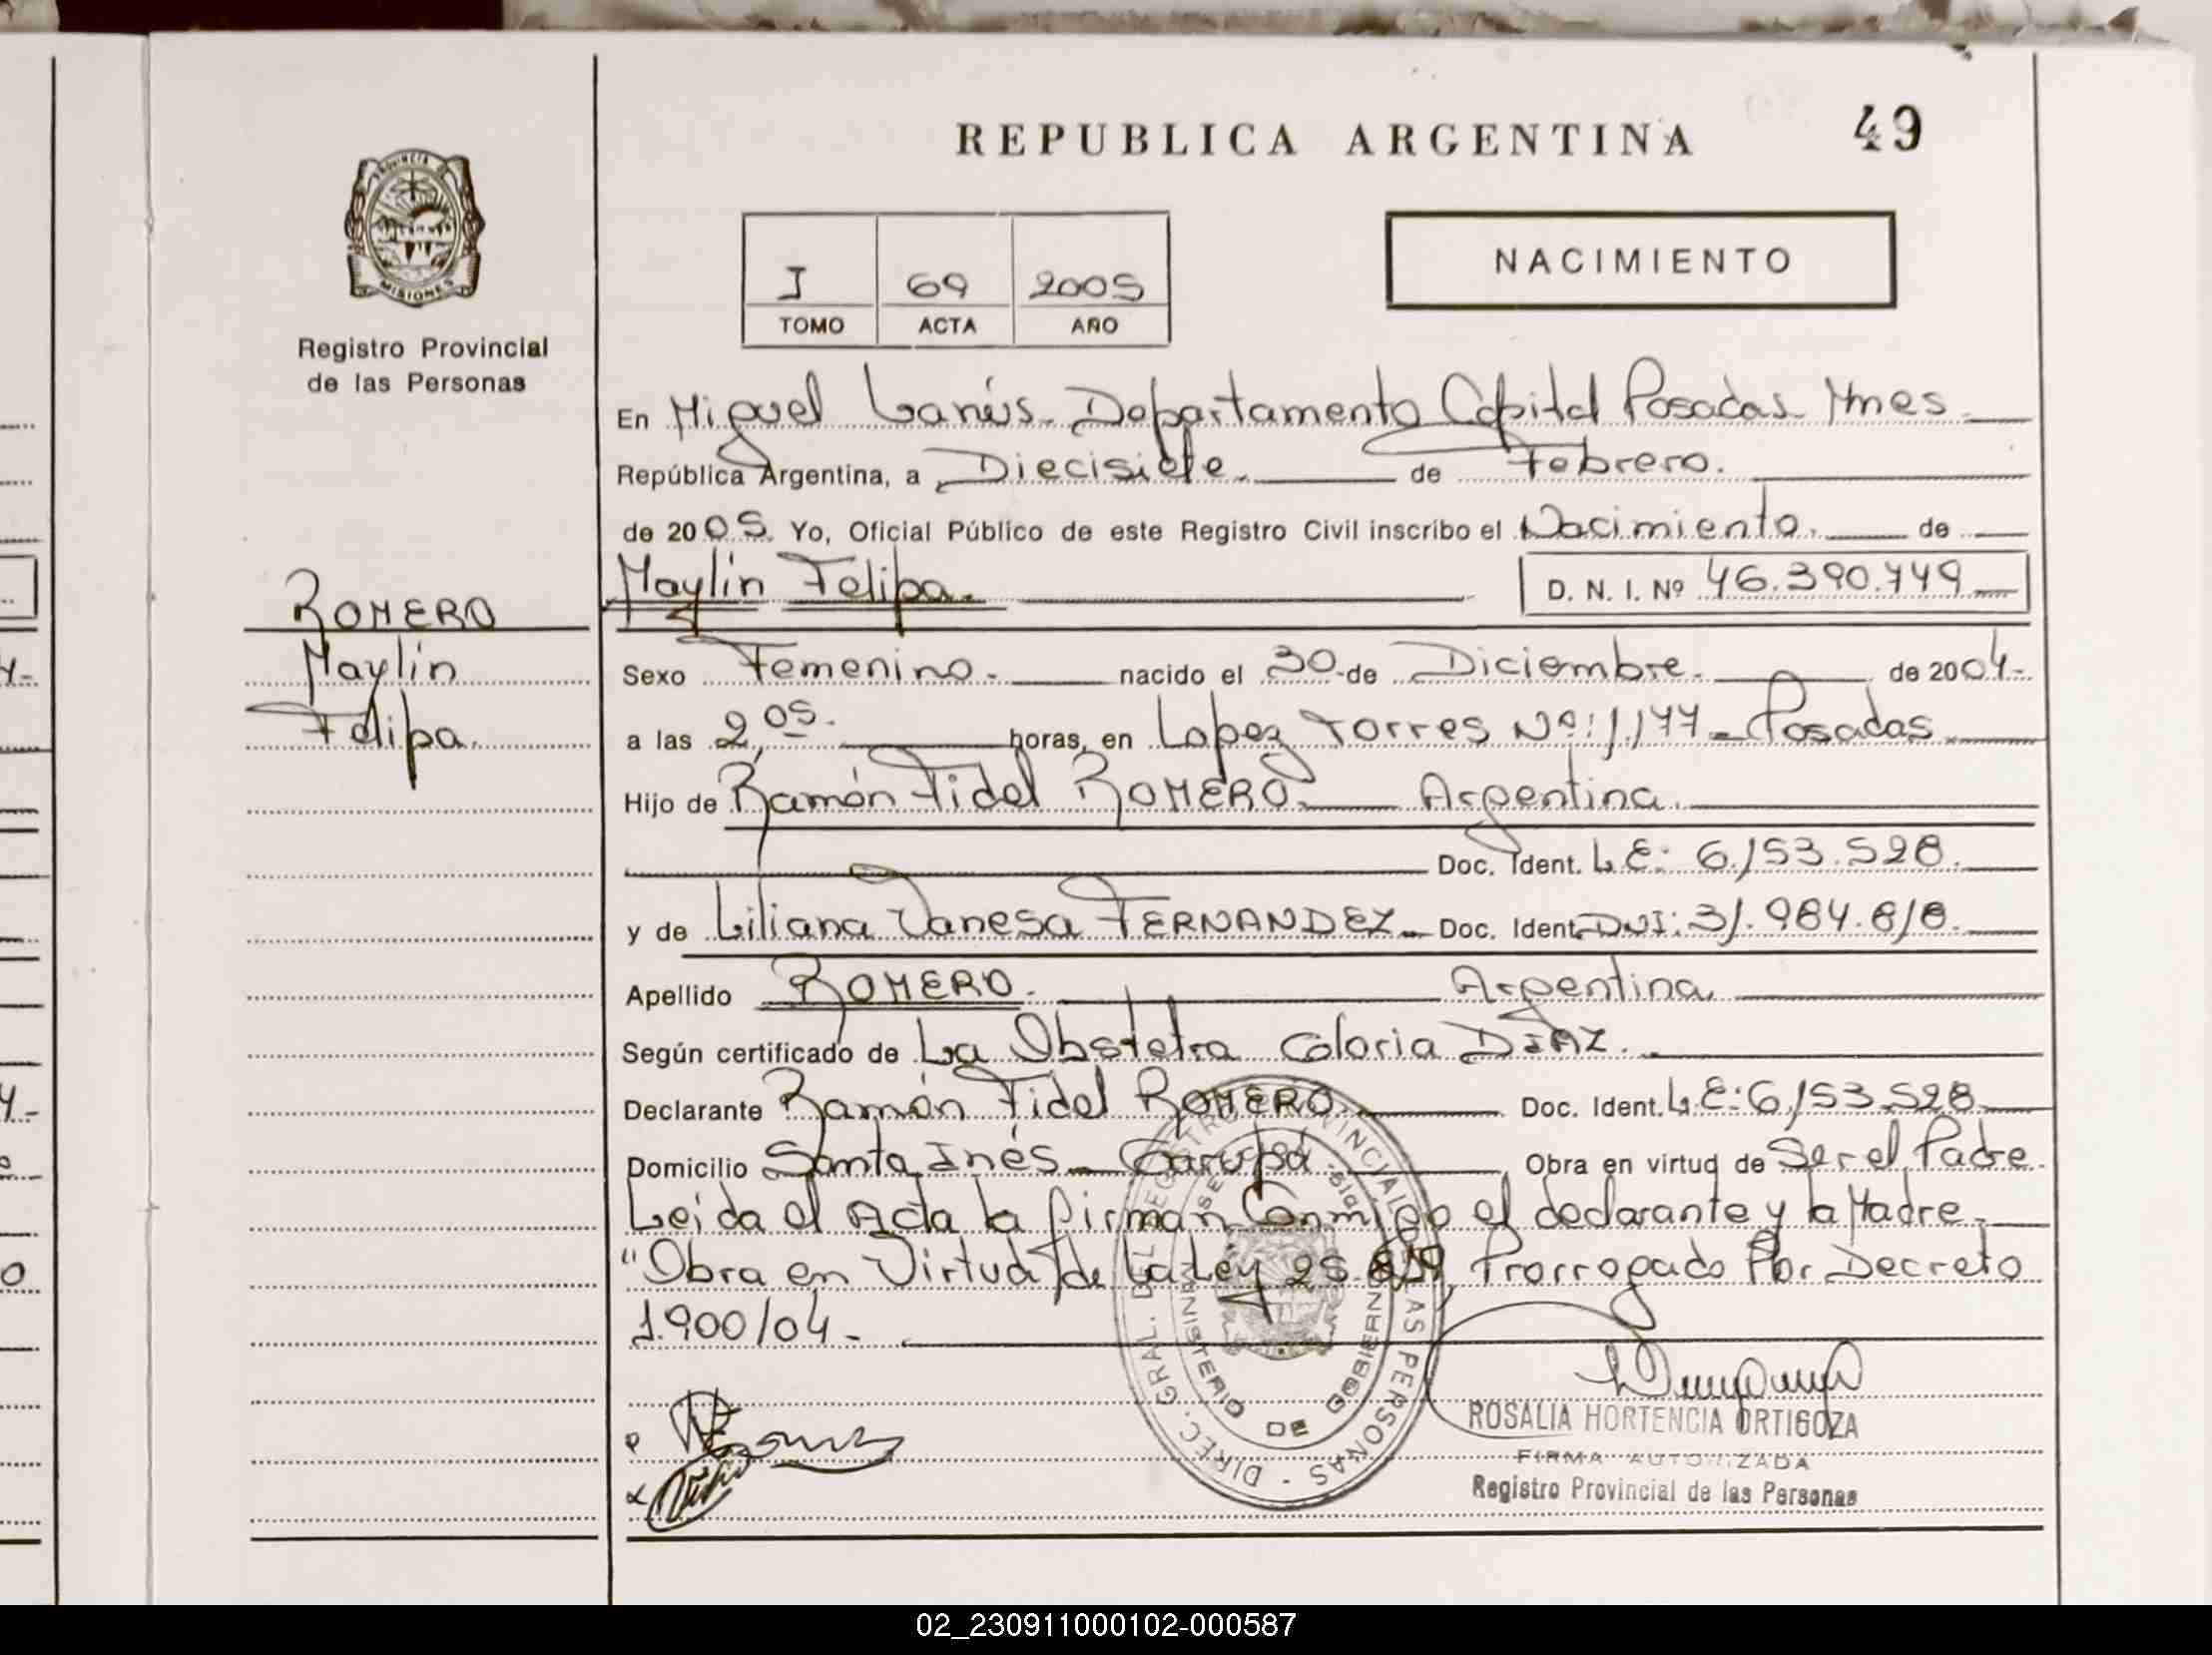 REPUBLICA ARGENTINA
49
PROVINCIA
MISIONES
Registro Provincial
de las Personas
I 69 2005
TOMO ACTA AÑO
NACIMIENTO
En Miguel Lanús - Departamento Capital Posadas Mnes -
República Argentina, a Diecisiete. de Febrero.
de 2005. Yo, Oficial Público de este Registro Civil inscribo el Nacimiento. de
Maylin Felipa. D. N. I. Nº 46.390.749
ROMERO
Maylin
Felipa.
Sexo Femenino. - nacido el 30 - de Diciembre. de 2004 -
a las 2,05. horas, en Lopez Torres Nº: 1.177 - Posadas.
Hijo de Ramón Fidel ROMERO. Argentina.
Doc. Ident. L.E: 6.153.528.
y de Liliana Vanesa FERNANDEZ - Doc. Ident. DNI: 31.984.818.
Apellido ROMERO. Argentina.
Según certificado de La Obstetra Gloria DIAZ.
Declarante Ramón Fidel ROMERO. Doc. Ident. L.E: 6.153.528
Domicilio Santa Inés - Garupá. Obra en virtud de Ser el Padre
Leida el Acta la firman Conmigo el declarante y la Madre -
"Obra en Virtud de La Ley 25.819, Prorrogado Por Decreto
1.900/04 -
DIREC. GRAL. DEL REGISTRO PROVINCIAL DE LAS PERSONAS
MINISTERIO DE GOBIERNO
ROSALIA HORTENCIA ORTIGOZA
FIRMA AUTORIZADA
Registro Provincial de las Personas
02_230911000102-000587